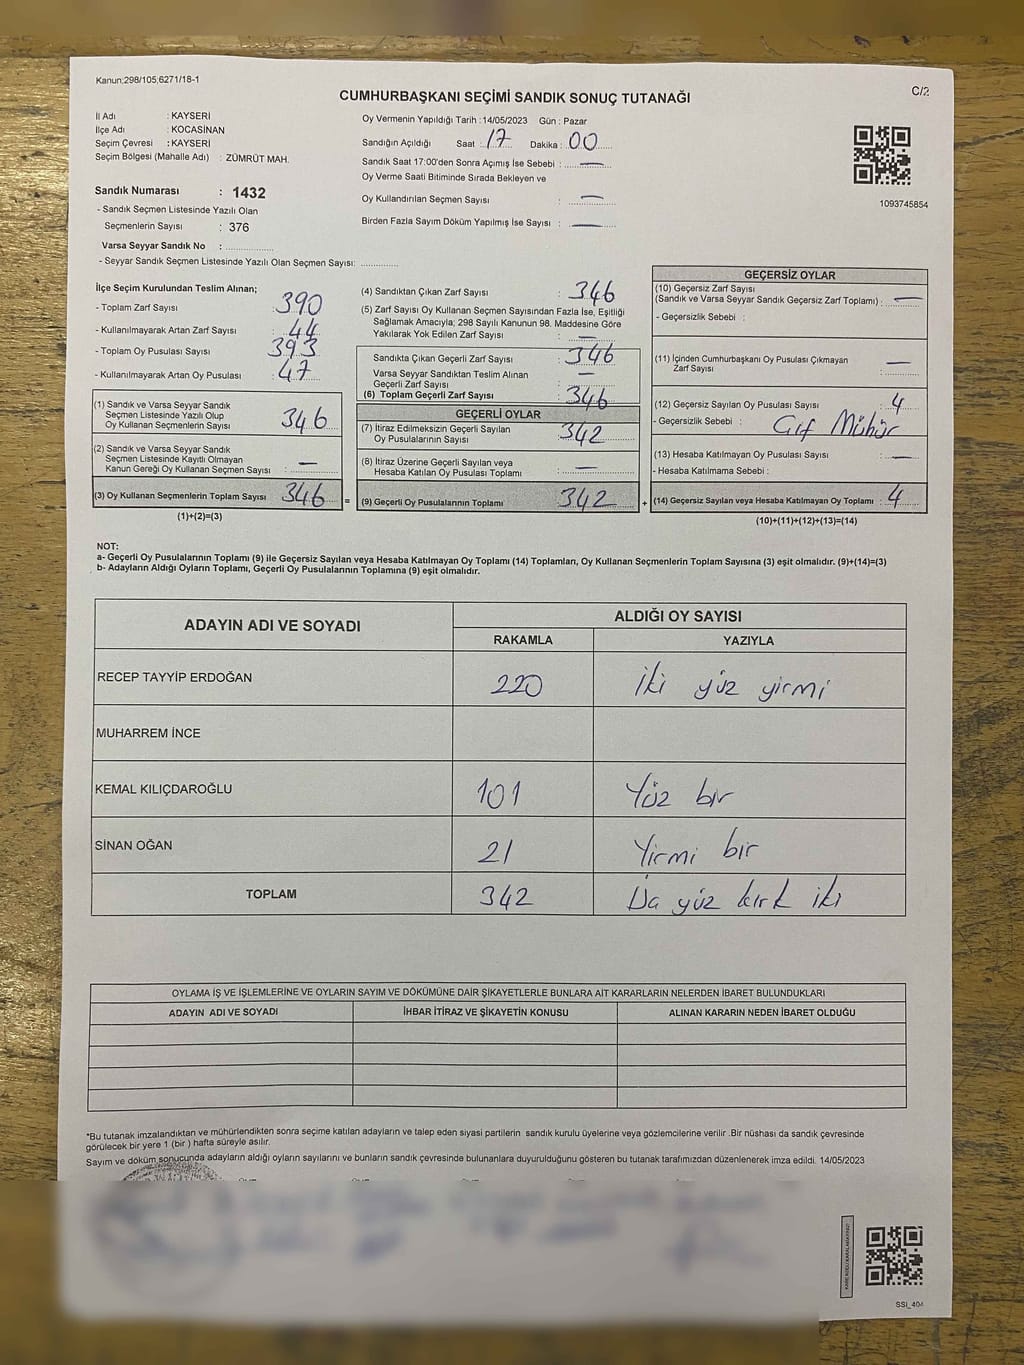 Kanun:298/105,6271/18-1
C/2
CUMHURBAŞKANI SEÇİMİ SANDIK SONUÇ TUTANAĞI
İl Adı : KAYSERİ
İlçe Adı : KOCASİNAN
Seçim Çevresi : KAYSERİ
Seçim Bölgesi (Mahalle Adı) : ZÜMRÜT MAH.
Sandık Numarası : 1432
- Sandık Seçmen Listesinde Yazılı Olan
Seçmenlerin Sayısı : 376
Varsa Seyyar Sandık No :
- Seyyar Sandık Seçmen Listesinde Yazılı Olan Seçmen Sayısı:
Oy Vermenin Yapıldığı Tarih : 14/05/2023 Gün : Pazar
Sandığın Açıldığı Saat : 17 Dakika : 00
Sandık Saat 17:00'den Sonra Açımış İse Sebebi : —
Oy Verme Saati Bitiminde Sırada Bekleyen ve
Oy Kullandırılan Seçmen Sayısı : —
Birden Fazla Sayım Döküm Yapılmış İse Sayısı : —
1093745854
İlçe Seçim Kurulundan Teslim Alınan;
- Toplam Zarf Sayısı : 390
- Kullanılmayarak Artan Zarf Sayısı : 44
- Toplam Oy Pusulası Sayısı : 393
- Kullanılmayarak Artan Oy Pusulası : 47
(1) Sandık ve Varsa Seyyar Sandık
Seçmen Listesinde Yazılı Olup
Oy Kullanan Seçmenlerin Sayısı : 346
(2) Sandık ve Varsa Seyyar Sandık
Seçmen Listesinde Kayıtlı Olmayan
Kanun Gereği Oy Kullanan Seçmen Sayısı : —
(3) Oy Kullanan Seçmenlerin Toplam Sayısı : 346 =
(1)+(2)=(3)
(4) Sandıktan Çıkan Zarf Sayısı : 346
(5) Zarf Sayısı Oy Kullanan Seçmen Sayısından Fazla İse, Eşitliği
Sağlamak Amacıyla; 298 Sayılı Kanunun 98. Maddesine Göre
Yakılarak Yok Edilen Zarf Sayısı : —
Sandıkta Çıkan Geçerli Zarf Sayısı : 346
Varsa Seyyar Sandıktan Teslim Alınan
Geçerli Zarf Sayısı : —
(6) Toplam Geçerli Zarf Sayısı : 346
GEÇERLİ OYLAR
(7) İtiraz Edilmeksizin Geçerli Sayılan
Oy Pusulalarının Sayısı : 342
(8) İtiraz Üzerine Geçerli Sayılan veya
Hesaba Katılan Oy Pusulası Toplamı : —
(9) Geçerli Oy Pusulalarının Toplamı : 342 +
GEÇERSİZ OYLAR
(10) Geçersiz Zarf Sayısı
(Sandık ve Varsa Seyyar Sandık Geçersiz Zarf Toplamı) : —
- Geçersizlik Sebebi :
(11) İçinden Cumhurbaşkanı Oy Pusulası Çıkmayan
Zarf Sayısı : —
(12) Geçersiz Sayılan Oy Pusulası Sayısı : 4
- Geçersizlik Sebebi : Çif Mühür
(13) Hesaba Katılmayan Oy Pusulası Sayısı : —
- Hesaba Katılmama Sebebi :
(14) Geçersiz Sayılan veya Hesaba Katılmayan Oy Toplamı : 4
(10)+(11)+(12)+(13)=(14)
NOT:
a- Geçerli Oy Pusulalarının Toplamı (9) ile Geçersiz Sayılan veya Hesaba Katılmayan Oy Toplamı (14) Toplamları, Oy Kullanan Seçmenlerin Toplam Sayısına (3) eşit olmalıdır. (9)+(14)=(3)
b- Adayların Aldığı Oyların Toplamı, Geçerli Oy Pusulalarının Toplamına (9) eşit olmalıdır.
ADAYIN ADI VE SOYADI
ALDIĞI OY SAYISI
RAKAMLA YAZIYLA
RECEP TAYYİP ERDOĞAN 220 İki yüz yirmi
MUHARREM İNCE
KEMAL KILIÇDAROĞLU 101 Yüz bir
SİNAN OĞAN 21 Yirmi bir
TOPLAM 342 yüz kırk iki
OYLAMA İŞ VE İŞLEMLERİNE VE OYLARIN SAYIM VE DÖKÜMÜNE DAİR ŞİKAYETLERLE BUNLARA AİT KARARLARIN NELERDEN İBARET BULUNDUKLARI
ADAYIN ADI VE SOYADI İHBAR İTİRAZ VE ŞİKAYETİN KONUSU ALINAN KARARIN NEDEN İBARET OLDUĞU
*Bu tutanak imzalandıktan ve mühürlendikten sonra seçime katılan adayların ve talep eden siyasi partilerin sandık kurulu üyelerine veya gözlemcilerine verilir .Bir nüshası da sandık çevresinde
görülecek bir yere 1 (bir ) hafta süreyle asılır.
Sayım ve döküm sonucunda adayların aldığı oyların sayılarını ve bunların sandık çevresinde bulunanlara duyurulduğunu gösteren bu tutanak tarafımızdan düzenlenerek imza edildi. 14/05/2023
SSI_404